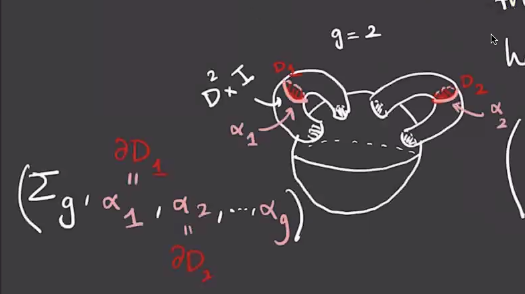 g = 2
D1
D2
D² × I
α1
α2
∂D1
=
(Σg, α1, α2, ..., αg)
=
∂D2